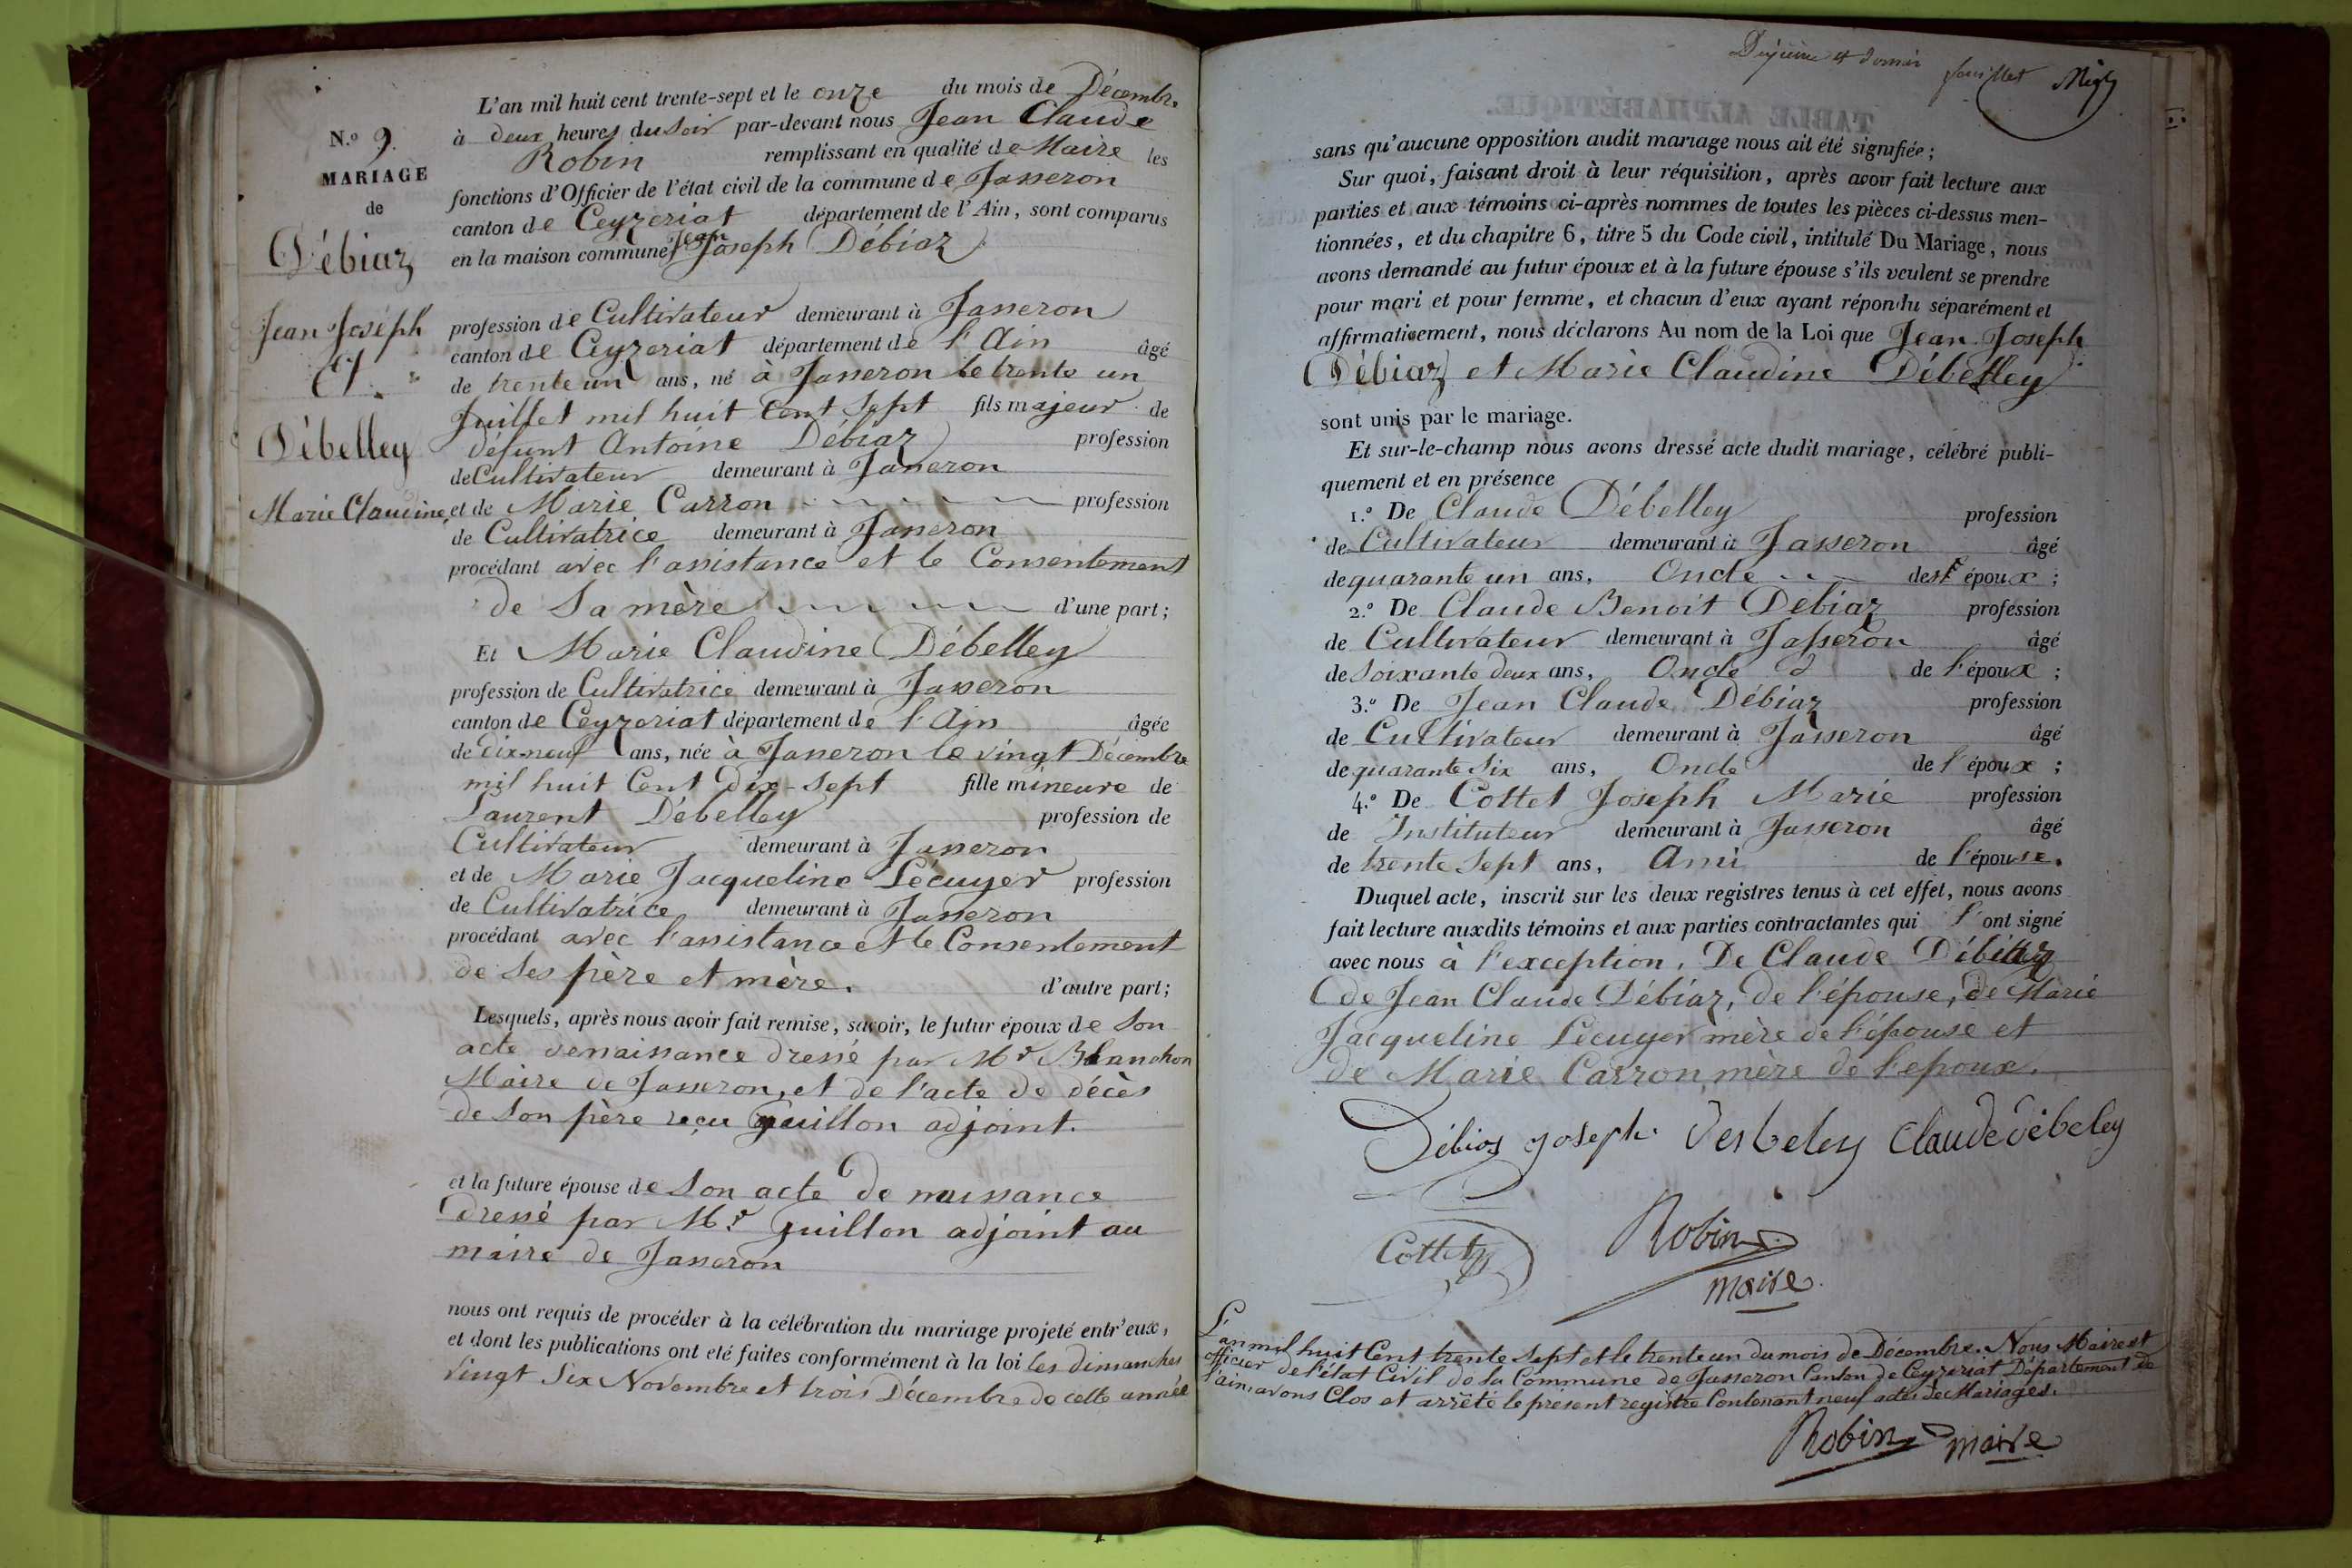 N.o 9.
MARIAGE
de
Débiaz
Jean Joseph
Et
Débelley
Marie Claudine
L'an mil huit cent trente-sept et le onze du mois de Décembre
à deux heures du soir par-devant nous Jean Claude
Robin remplissant en qualité de Maire les
fonctions d'Officier de l'état civil de la commune de Jasseron
canton de Ceyzeriat département de l'Ain, sont comparus
en la maison commune, Jean Joseph Débiaz
profession de Cultivateur demeurant à Jasseron
canton de Ceyzeriat département de l'Ain âgé
de trente un ans, né à Jasseron le trente un
Juillet mil huit Cent Sept fils majeur de
défunt Antoine Débiaz profession
de Cultivateur demeurant à Jasseron
et de Marie Carron profession
de Cultivatrice demeurant à Jasseron
procédant avec l'assistance et le Consentement
de Sa mère d'une part;
Et Marie Claudine Débelley
profession de Cultivatrice demeurant à Jasseron
canton de Ceyzeriat département de l'Ain âgée
de dix-neuf ans, née à Jasseron le vingt Décembre
mil huit Cent Dix-Sept fille mineure de
Laurent Débelley profession de
Cultivateur demeurant à Jasseron
et de Marie Jacqueline Lécuyer profession
de Cultivatrice demeurant à Jasseron
procédant avec l'assistance et le Consentement
de Ses père et mère. d'autre part;
Lesquels, après nous avoir fait remise, savoir, le futur époux de Son
acte de naissance dressé par Mr Blanchon
Maire de Jasseron, et de l'acte de décès
de Son père reçu Guillon adjoint.
et la future épouse de Son acte de naissance
dressé par Mr Guillon adjoint au
maire de Jasseron
nous ont requis de procéder à la célébration du mariage projeté entr'eux,
et dont les publications ont été faites conformément à la loi les dimanches
vingt Six Novembre et trois Décembre de cette année
Dixième et dernier feuillet
TABLE ALPHABÉTIQUE.
sans qu'aucune opposition audit mariage nous ait été signifiée;
Sur quoi, faisant droit à leur réquisition, après avoir fait lecture aux
parties et aux témoins ci-après nommes de toutes les pièces ci-dessus men-
tionnées, et du chapitre 6, titre 5 du Code civil, intitulé Du Mariage, nous
avons demandé au futur époux et à la future épouse s'ils veulent se prendre
pour mari et pour femme, et chacun d'eux ayant répondu séparément et
affirmativement, nous déclarons Au nom de la Loi que Jean Joseph
Débiaz et Marie Claudine Débelley
sont unis par le mariage.
Et sur-le-champ nous avons dressé acte dudit mariage, célébré publi-
quement et en présence
1.o De Claude Débelley profession
de Cultivateur demeurant à Jasseron âgé
de quarante un ans, Oncle des époux;
2.o De Claude Benoit Débiaz profession
de Cultivateur demeurant à Jasseron âgé
de Soixante deux ans, Oncle de l'époux;
3.o De Jean Claude Débiaz profession
de Cultivateur demeurant à Jasseron âgé
de quarante Six ans, Oncle de l'époux;
4.o De Cottet Joseph Marie profession
de Instituteur demeurant à Jasseron âgé
de trente Sept ans, Ami de l'épouse.
Duquel acte, inscrit sur les deux registres tenus à cet effet, nous avons
fait lecture auxdits témoins et aux parties contractantes qui l'ont signé
avec nous à l'exception, De Claude Débiaz
de Jean Claude Débiaz, de l'épouse, de Marie
Jacqueline Lécuyer mère de l'épouse et
de Marie Carron, mère de l'epoux.
Débioz joseph Desbeley Claude débeley
Cottet Robin
maire
L'an mil huit Cent trente Sept et le trente un du mois de Décembre. Nous Maire et
officier de l'état Civil de la Commune de Jasseron Canton de Ceyzeriat Département de
l'ain, avons Clos et arrêté le présent registre Contenant neuf actes de Mariages.
Robin maire